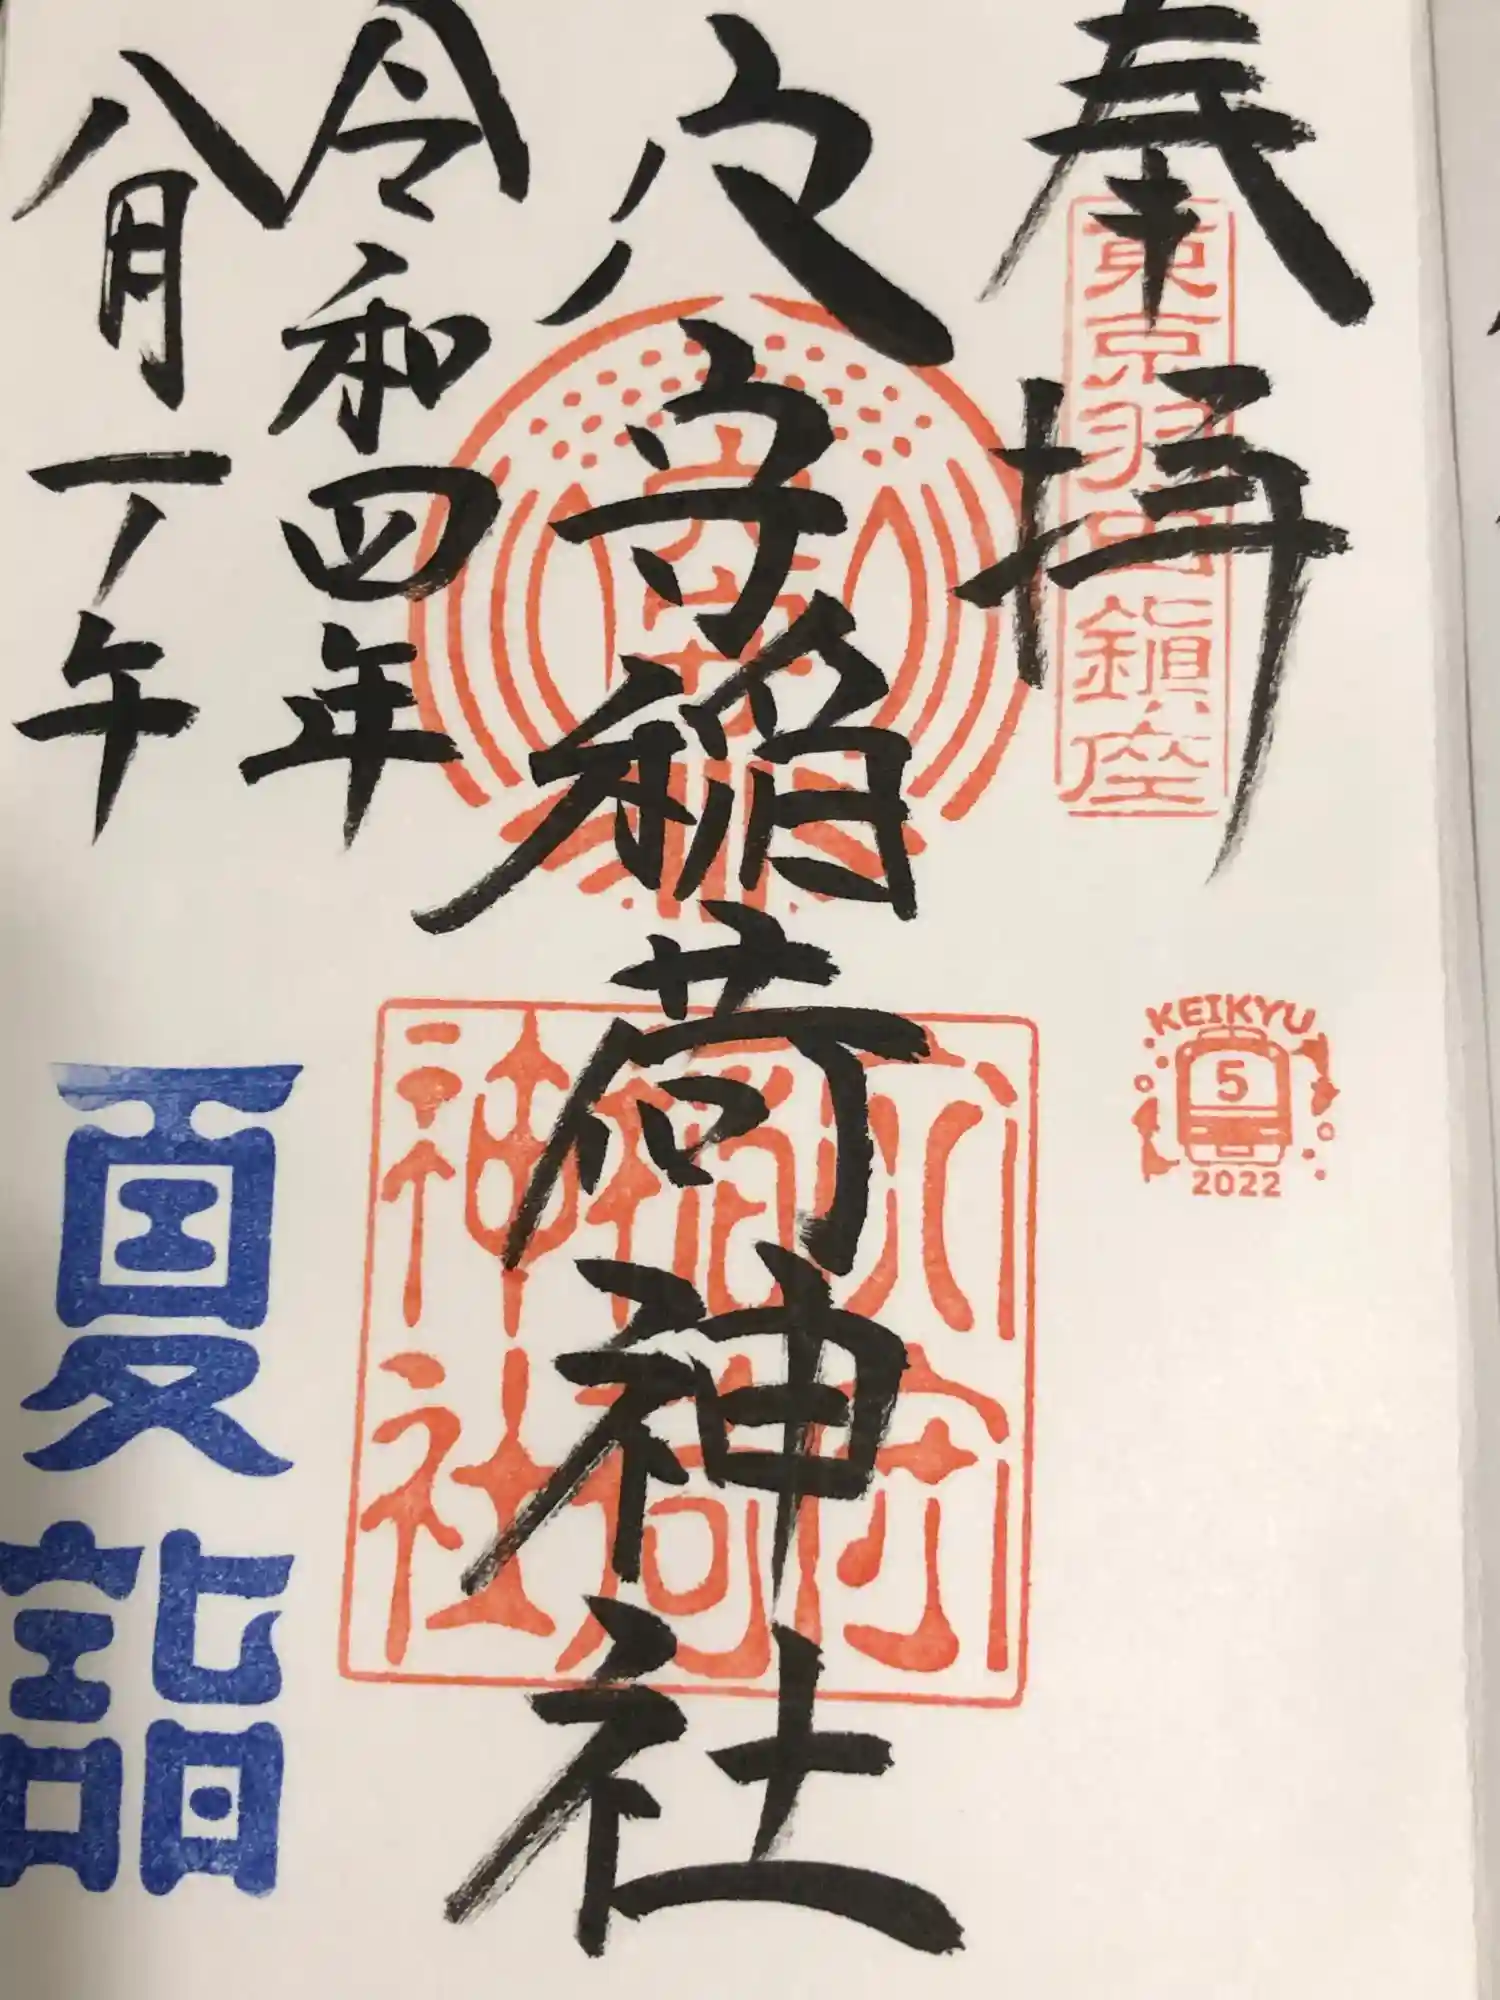 奉拝
東京羽田鎮座
穴守稲荷神社
穴守
穴守稲荷神社
令和四年
八月一ノ午
KEIKYU
5
2022
夏詣